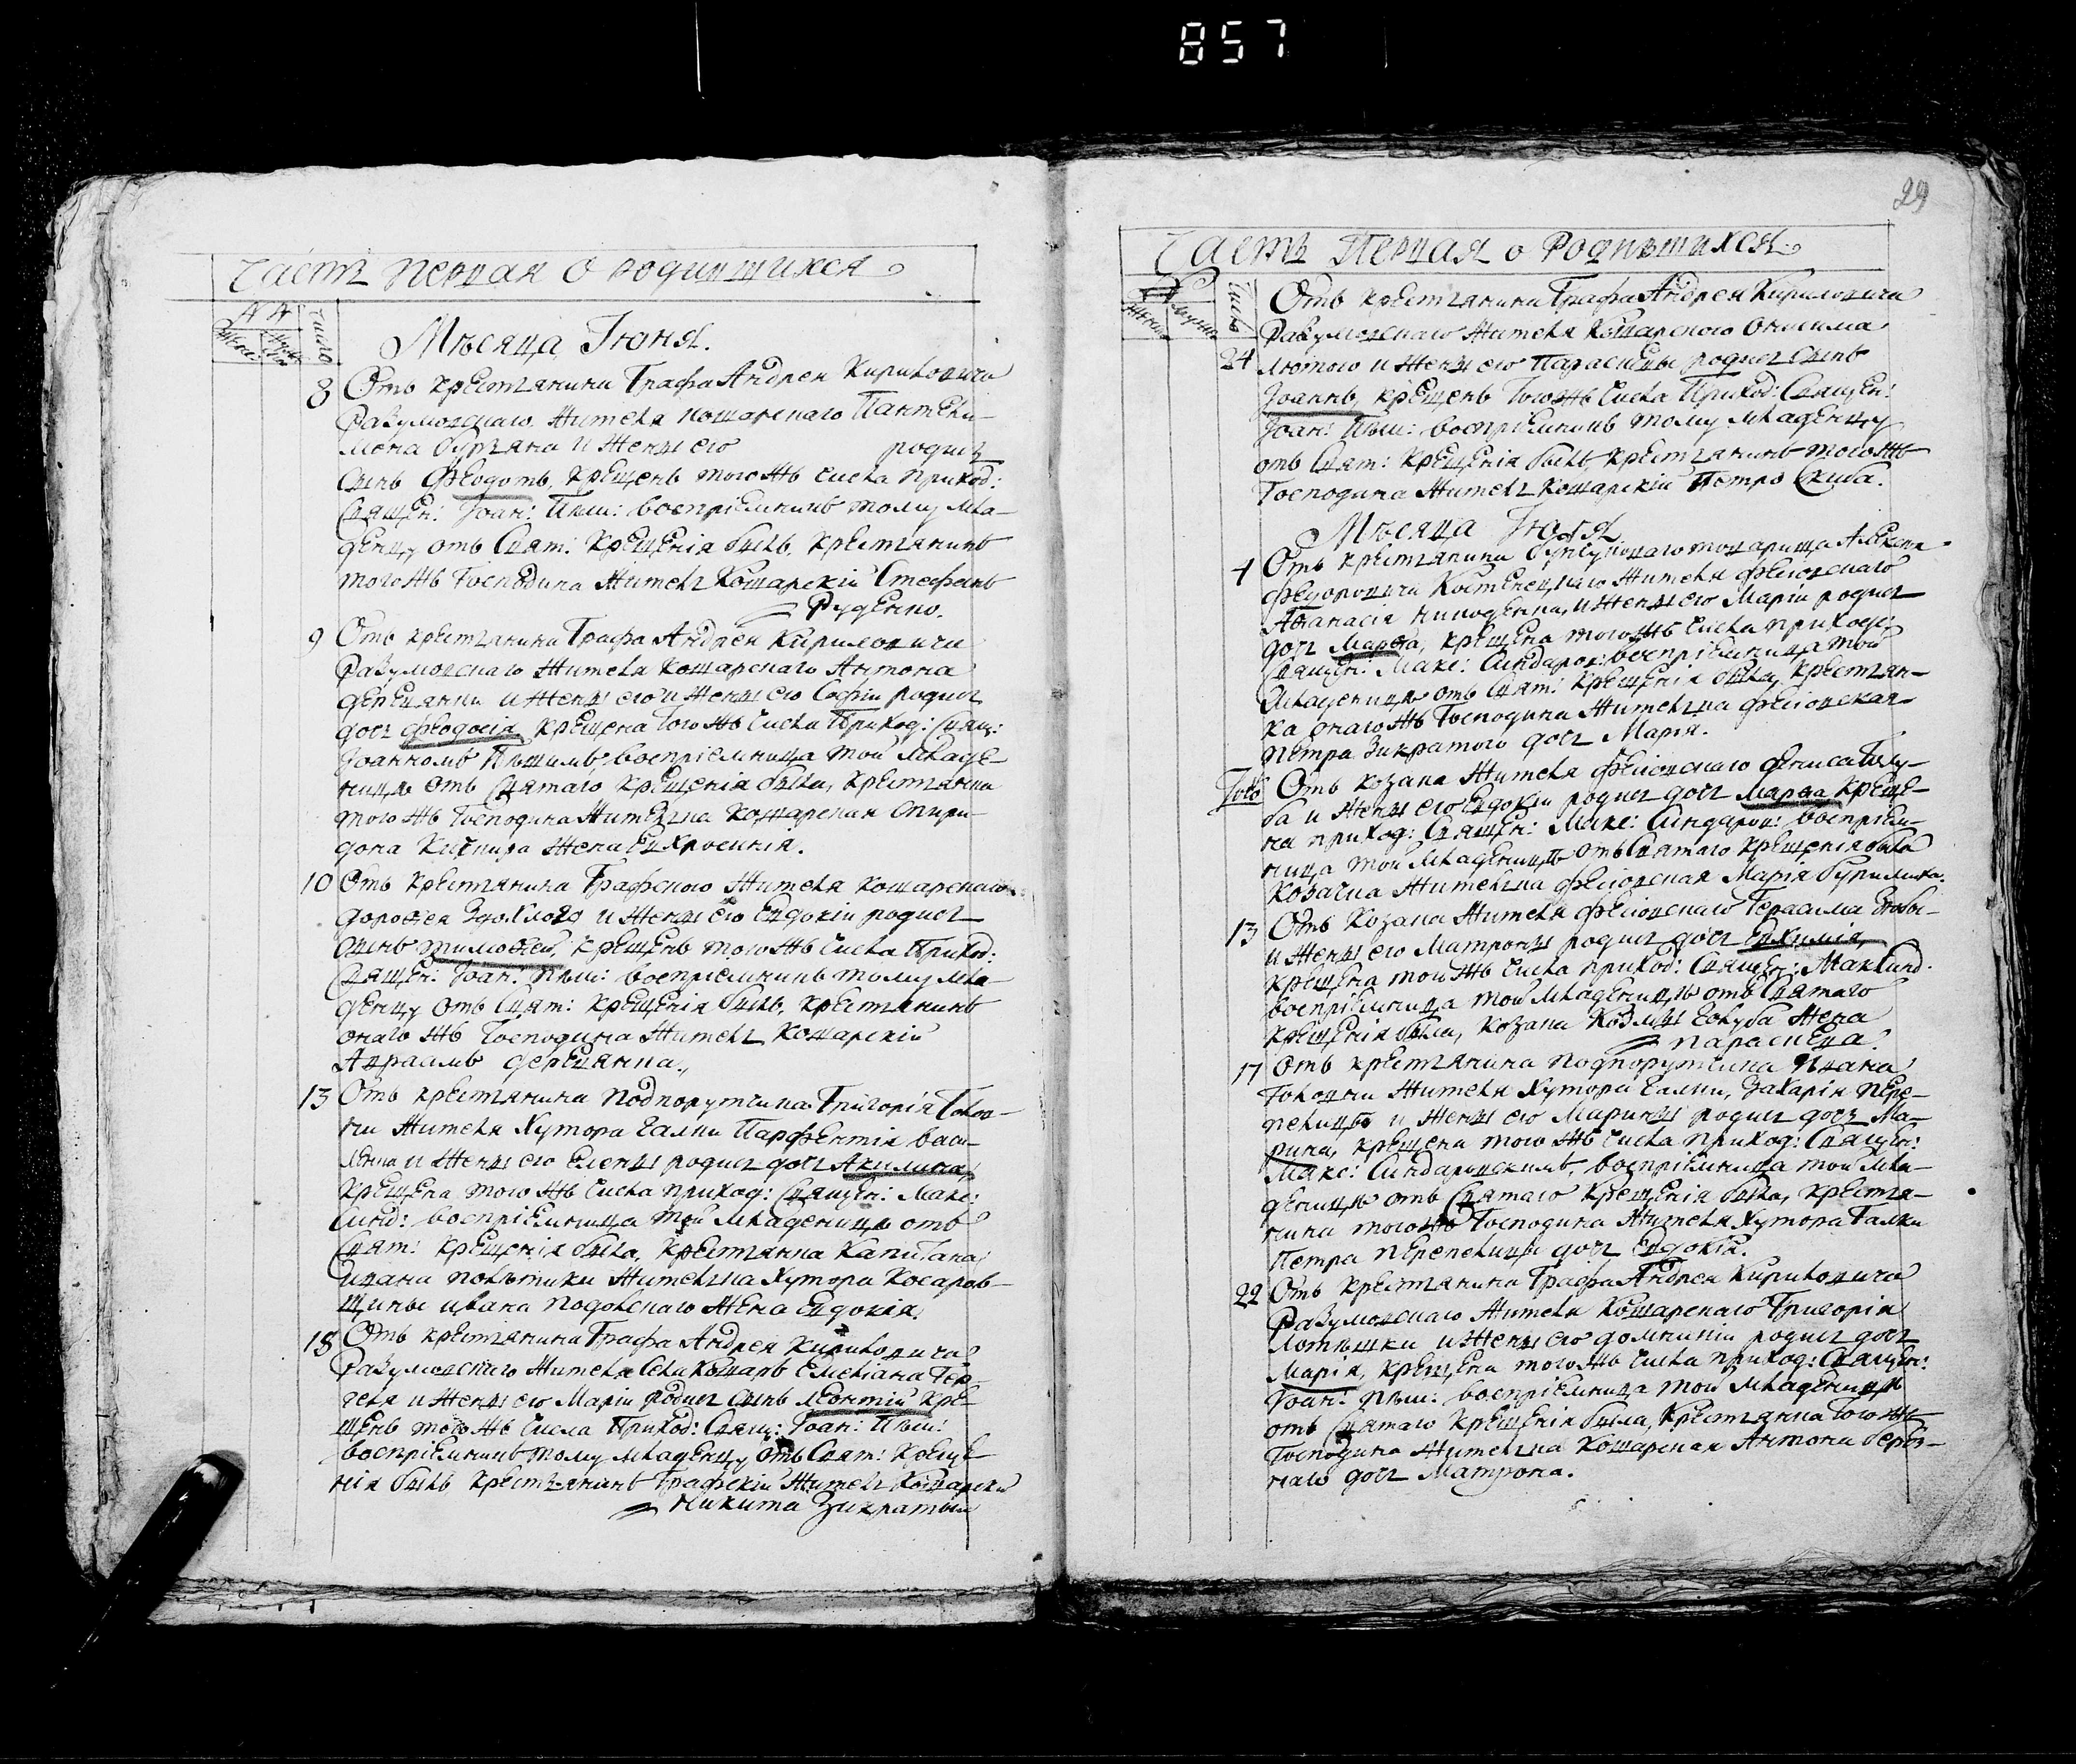 857
Часть первая о родившихся
№
число
женск:
Мѣсяца Іюня.
8 Отъ крестянина Графа Андрея Кириловича
Разумовскаго жителя кошарскаго Пантели-
мона и жены его родил
сынъ Феодотъ, крещенъ того жъ числа приход:
священ: Іоан: Пыш: воспріемникъ тому мла-
денцу отъ свят: крещенія былъ, крестянинъ
того жъ Господина житель Кошарскій Стефанъ
Руденко.
9 Отъ крестянина Графа Андрея Кириловича
Разумовскаго жителя кошарскаго Антона
деревянки и жены его и жены его Софіи родил
дочь Феодосія, крещена того жъ числа приход: свящ:
Іоанномъ воспріемница той младе-
ницѣ отъ святаго крещенія была, крестянки
того жъ Господина жителна кошарская Спири-
дона жена Евхросинія.
10 Отъ крестянина Графского жителя кошарскаго
дорофея и жены его Евдокіи родил
сынъ тимофей, крещенъ того жъ числа приход:
священ: Іоан: Пыш: воспріемникъ тому мла-
денцу отъ свят: крещенія былъ, крестянинъ
онаго жъ Господина житель Кошарскій
Авраамъ деревянка.
13 Отъ крестянина подпоручика Григорія Голов-
ни жителя хутора Галки Парфентія васи-
ленка и жены его Елены родил дочь Акилина,
крещена того жъ числа приход: священ: Макс:
Синд: воспріемница той младеницѣ отъ
свят: крещенія была, крестянка капитана
ивана полѣтики жителна хутора Косаров-
щины ивана подолскаго жена Евдокія.
18 Отъ крестянина Графа Андрея Кириловича
Разумовскаго жителя села кошаръ Емеліана Гер-
геля и жены его Маріи родил сынъ леонтій кре-
щенъ того жъ числа приход: свящ: Іоан: Пыш:
воспріемникъ тому младенцу отъ свят: креще-
нія былъ крестянинъ Графскій житель Кошарскій
Никита Закратый
29
Часть Первая о Родившихся
число
женск:
Отъ крестянина Графа Андрея Кириловича
Разумовскаго жителя Кошарского Онисима
24 лютого и жены его Параскевы родил сынъ
Іоаннъ, крещенъ того жъ числа приход: священ:
Іоан: Пыш: воспріемникъ тому младенцу
отъ свят: крещенія былъ, крестянинъ того жъ
Господина житель кошарскій Петро Скиба.
Мѣсяца Іюля
4 Отъ крестянина бунчукового товарища Алексея
Федоровича Костенецкаго жителя
Афанасія и жены его Маріи родил
дочь Марфа, крещена того жъ числа приход:
священ: Макс: Синдаров: воспріемница той
младеницѣ отъ свят: крещенія была, крестян-
ка онаго жъ Господина жителна
петра Закратого дочь Марія.
Того Отъ козака жителя дениса Голу-
ба и жены его Евдокіи родил дочь Марфа, креще-
на приход: священ: Макс: Синдаров: воспріем-
ница той младеницѣ отъ святаго крещенія была
козачка жителна Марія
13 Отъ козака жителя Герасима
и жены его Матроны родил дочь Евхимія,
крещена того жъ числа приход: священ: Мак Синд.
воспріемница той младеницѣ отъ святаго
крещенія была, козака Козмы жена
параскева.
17 Отъ крестянина подпоручика Ивана
Головни жителя хутора Галки, Захарія пере-
пелицы и жены его Марины родил дочь Ма-
рина, крещена того жъ числа приход: священ:
Макс: Синдаровскимъ, воспріемница той мла-
деницѣ отъ святаго крещенія была, крестя-
нина того жъ Господина жителя хутора Галки
Петра перепелицы дочь Евдокія.
22 Отъ крестянина Графа Андрея Кириловича
Разумовскаго жителя Кошарскаго Григорія
и жены его домникіи родил дочь
Марія, крещена того жъ числа приход: священ:
Іоан: Пыш: воспріемница той младеницѣ
отъ святаго крещенія была, крестянка того жъ
Господина жителна Кошарская Антона
дочь Матрона.